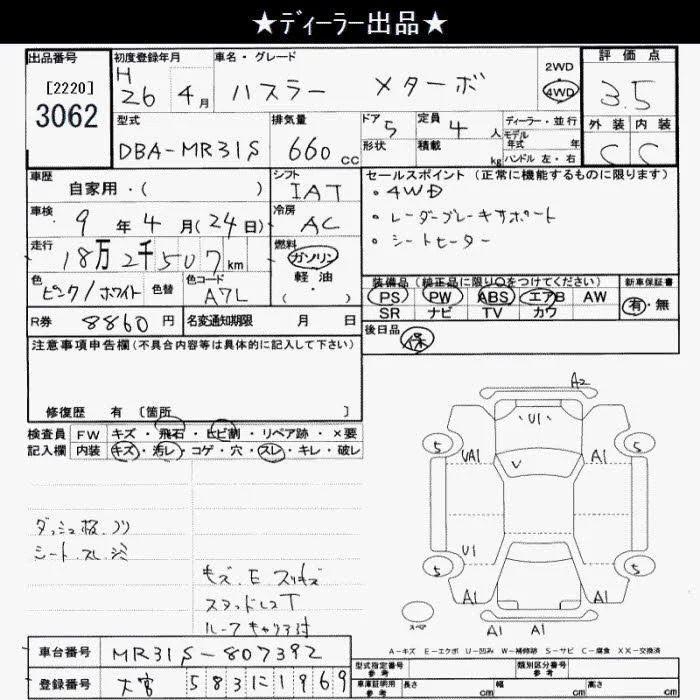 ★ディーラー出品★
出品番号
[2220]
3062
初度登録年月
H
26 4月
車名・グレード
ハスラー Xターボ
2WD
4WD
評価点
3.5
外装 内装
C C
型式
DBA-MR31S
排気量
660 CC
ドア 5
形状
定員 4 人
積載 kg
ディーラー・並行
モデル
年式 年
ハンドル 左・右
車歴
自家用・( )
シフト
IAT
セールスポイント (正常に機能するものに限ります)
・4WD
・レーダーブレーキサポート
・シートヒーター
車検
9 年 4 月(24日)
冷房
AC
走行
18万2千507 km
燃料
ガソリン
軽油
( ・ )
色
ピンク/ホワイト
色替
色コード
A7L
装備品 (純正品に限り○をつけてください)
PS PW ABS エアB AW
SR ナビ TV カワ
新車保証書
有・無
R券 8860 円
名変通知期限 月 日
後日品 保
注意事項申告欄(不具合内容等は具体的に記入して下さい)
修復歴 有 〔箇所 〕
検査員 FW キズ・飛石・ヒビ割・リペア跡・×要
記入欄 内装 キズ・汚レ・コゲ・穴・スレ・キレ・破レ
ダッシュ板.ノリ
シート.スレ.シミ
キズ.E.スリキズ
スタッドレスT
ルーフキャリア付
A2
U1
5 5
UA1 V A1
U1
5 5
A1 A1
スペア
A1 A1
A-キズ E-エクボ U-凹み W-補修跡 S-サビ C-腐食 XX-交換済
車台番号 MR31S-807392
登録番号 大宮 583に1969
型式指定番号
参考
類別区分番号
参考
車庫証明用
参考
長さ cm 幅 cm 高さ cm